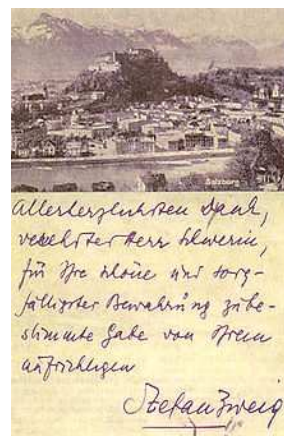 Salzburg
Allerherzlichsten Dank,
verehrter Herr Schwerin,
für Ihre schöne und sorg-
fältigster Bewahrung zube-
stimmte Gabe von Ihrem
aufrichtigen
Stefan Zweig